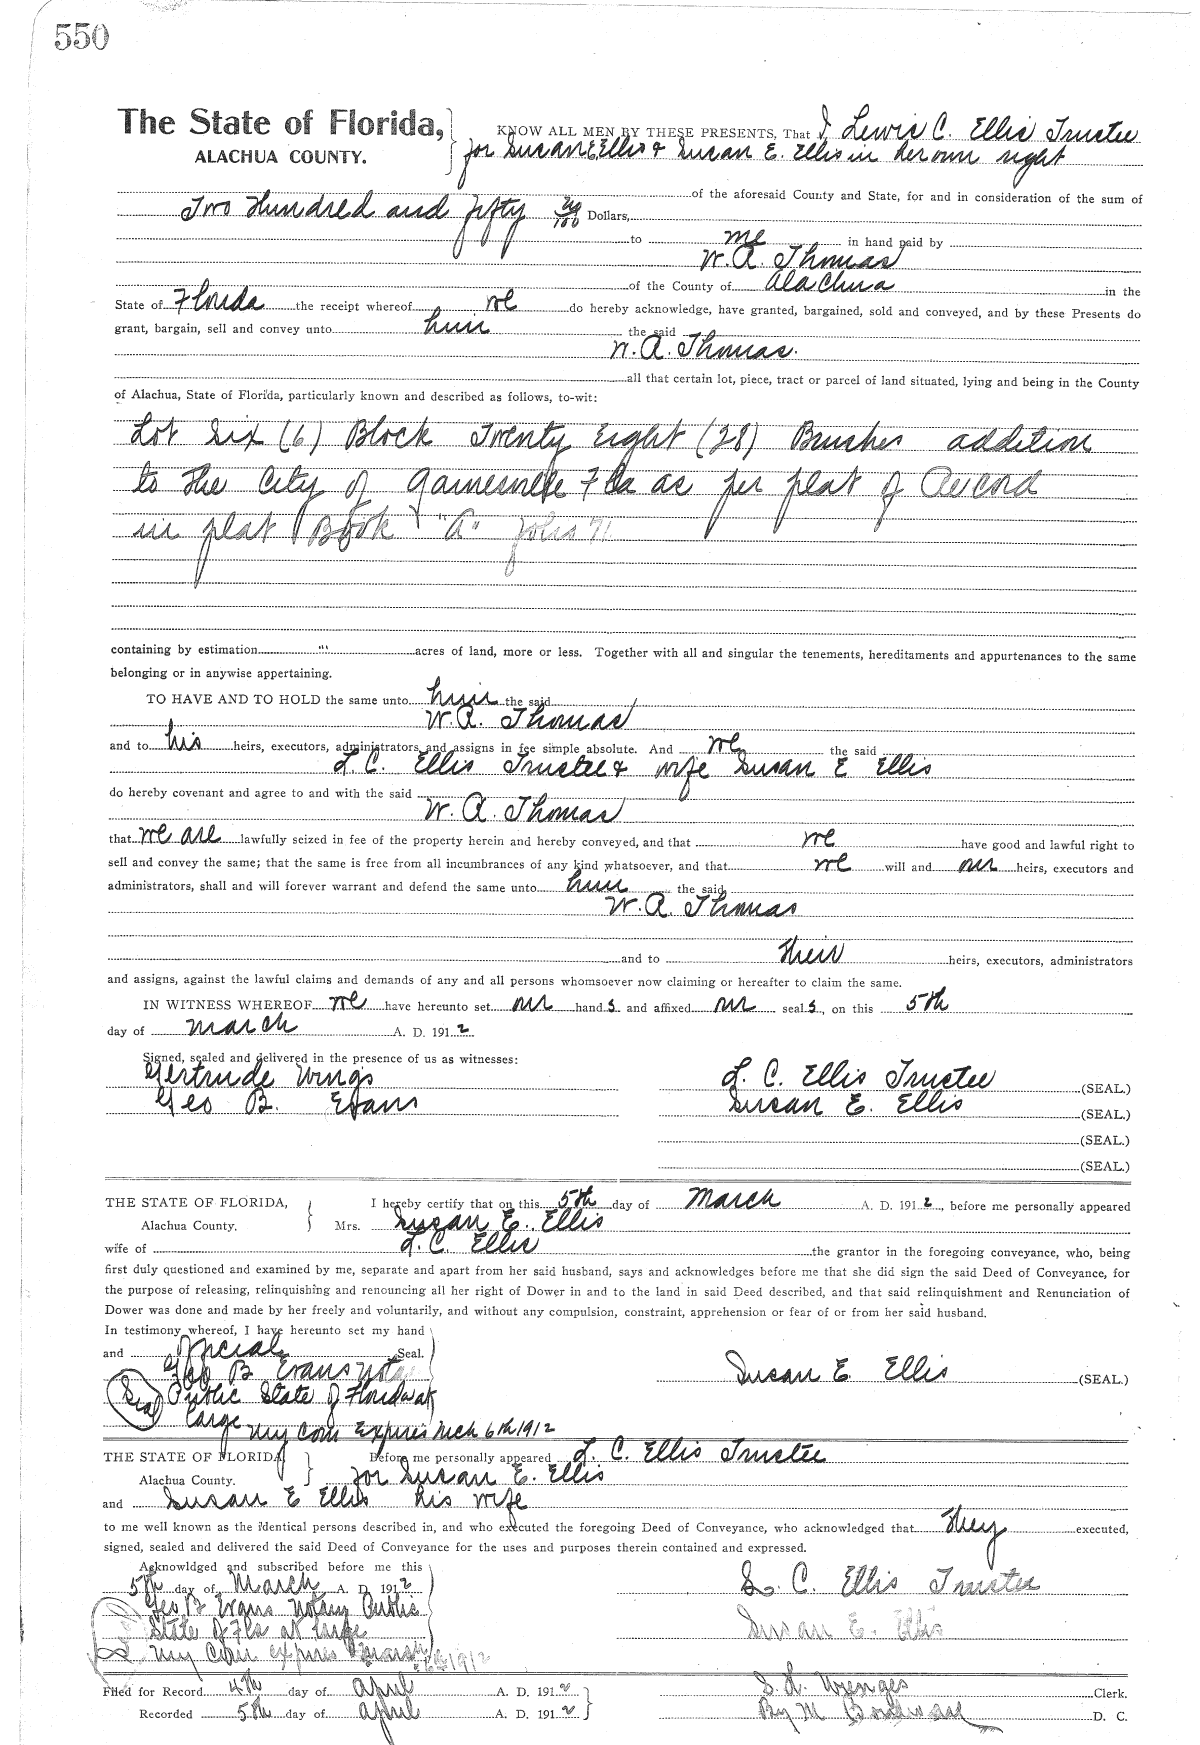 550
The State of Florida, KNOW ALL MEN BY THESE PRESENTS, That I, Lewis C. Ellis Trustee
ALACHUA COUNTY. for Susan E Ellis & Susan E. Ellis in her own right
of the aforesaid County and State, for and in consideration of the sum of
Two Hundred and fifty Dollars,
to me in hand paid by
W. R. Thomas
of the County of Alachua in the
State of Florida the receipt whereof we do hereby acknowledge, have granted, bargained, sold and conveyed, and by these Presents do
grant, bargain, sell and convey unto him the said
W. R. Thomas.
all that certain lot, piece, tract or parcel of land situated, lying and being in the County
of Alachua, State of Florida, particularly known and described as follows, to-wit:
Lot Six (6) Block Twenty Eight (28) Brushes addition
to the City of Gainesville Fla as per plat of Record
in plat Book "A" folio 71
containing by estimation " acres of land, more or less. Together with all and singular the tenements, hereditaments and appurtenances to the same
belonging or in anywise appertaining.
TO HAVE AND TO HOLD the same unto him the said
W. R. Thomas
and to his heirs, executors, administrators and assigns in fee simple absolute. And we the said
L. C. Ellis Trustee & wife Susan E Ellis
do hereby covenant and agree to and with the said
W. R. Thomas
that we are lawfully seized in fee of the property herein and hereby conveyed, and that we have good and lawful right to
sell and convey the same; that the same is free from all incumbrances of any kind whatsoever, and that we will and our heirs, executors and
administrators, shall and will forever warrant and defend the same unto him the said
W. R. Thomas
and to their heirs, executors, administrators
and assigns, against the lawful claims and demands of any and all persons whomsoever now claiming or hereafter to claim the same.
IN WITNESS WHEREOF we have hereunto set our hand s and affixed our seal s, on this 5th
day of March A. D. 1912
Signed, sealed and delivered in the presence of us as witnesses:
Gertrude Wings L. C. Ellis Trustee (SEAL.)
Geo B. Evans Susan E. Ellis (SEAL.)
(SEAL.)
(SEAL.)
THE STATE OF FLORIDA, I hereby certify that on this 5th day of March A. D. 1912, before me personally appeared
Alachua County. Mrs. Susan E. Ellis
wife of L. C. Ellis the grantor in the foregoing conveyance, who, being
first duly questioned and examined by me, separate and apart from her said husband, says and acknowledges before me that she did sign the said Deed of Conveyance, for
the purpose of releasing, relinquishing and renouncing all her right of Dower in and to the land in said Deed described, and that said relinquishment and Renunciation of
Dower was done and made by her freely and voluntarily, and without any compulsion, constraint, apprehension or fear of or from her said husband.
In testimony whereof, I have hereunto set my hand
and official Seal.
Geo B Evans Nota Susan E Ellis (SEAL.)
Seal Public State of Florida at
Large
My Com Expires Mch 6th 1912
THE STATE OF FLORIDA Before me personally appeared L. C. Ellis Trustee
Alachua County. for Susan E. Ellis
and Susan E Ellis his wife
to me well known as the identical persons described in, and who executed the foregoing Deed of Conveyance, who acknowledged that they executed,
signed, sealed and delivered the said Deed of Conveyance for the uses and purposes therein contained and expressed.
Acknowldged and subscribed before me this
5th day of March A. D. 1912 L. C. Ellis Trustee
Geo B Evans Notary Public
State of Fla at Large Susan E. Ellis
My Com expires March 6th 1912
Filed for Record 4th day of April A. D. 1912 Clerk.
Recorded 5th day of April A. D. 1912 By M D. C.